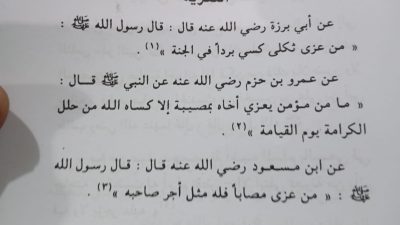 عن أبي برزة رضي الله عنه قال : قال رسول الله ﷺ :
« من عزى ثكلى كسي برداً في الجنة »(١) .
عن عمرو بن حزم رضي الله عنه عن النبي ﷺ قـال :
« ما من مؤمن يعزي أخاه بمصيبة إلا كساه الله من حلل
الكرامة يوم القيامة »(٢) .
عن ابن مسعود رضي الله عنه قال : قال رسول الله
ﷺ : « من عزى مصاباً فله مثل أجر صاحبه »(٣) .